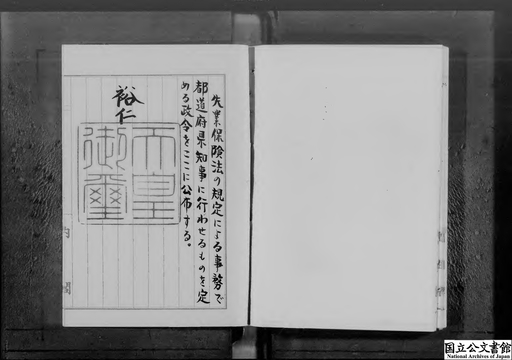 失業保険法の規定による事務で
都道府県知事に行わせるものを定
める政令をここに公布する。
裕仁
天皇
御璽
内
閣
国立公文書館
National Archives of Japan